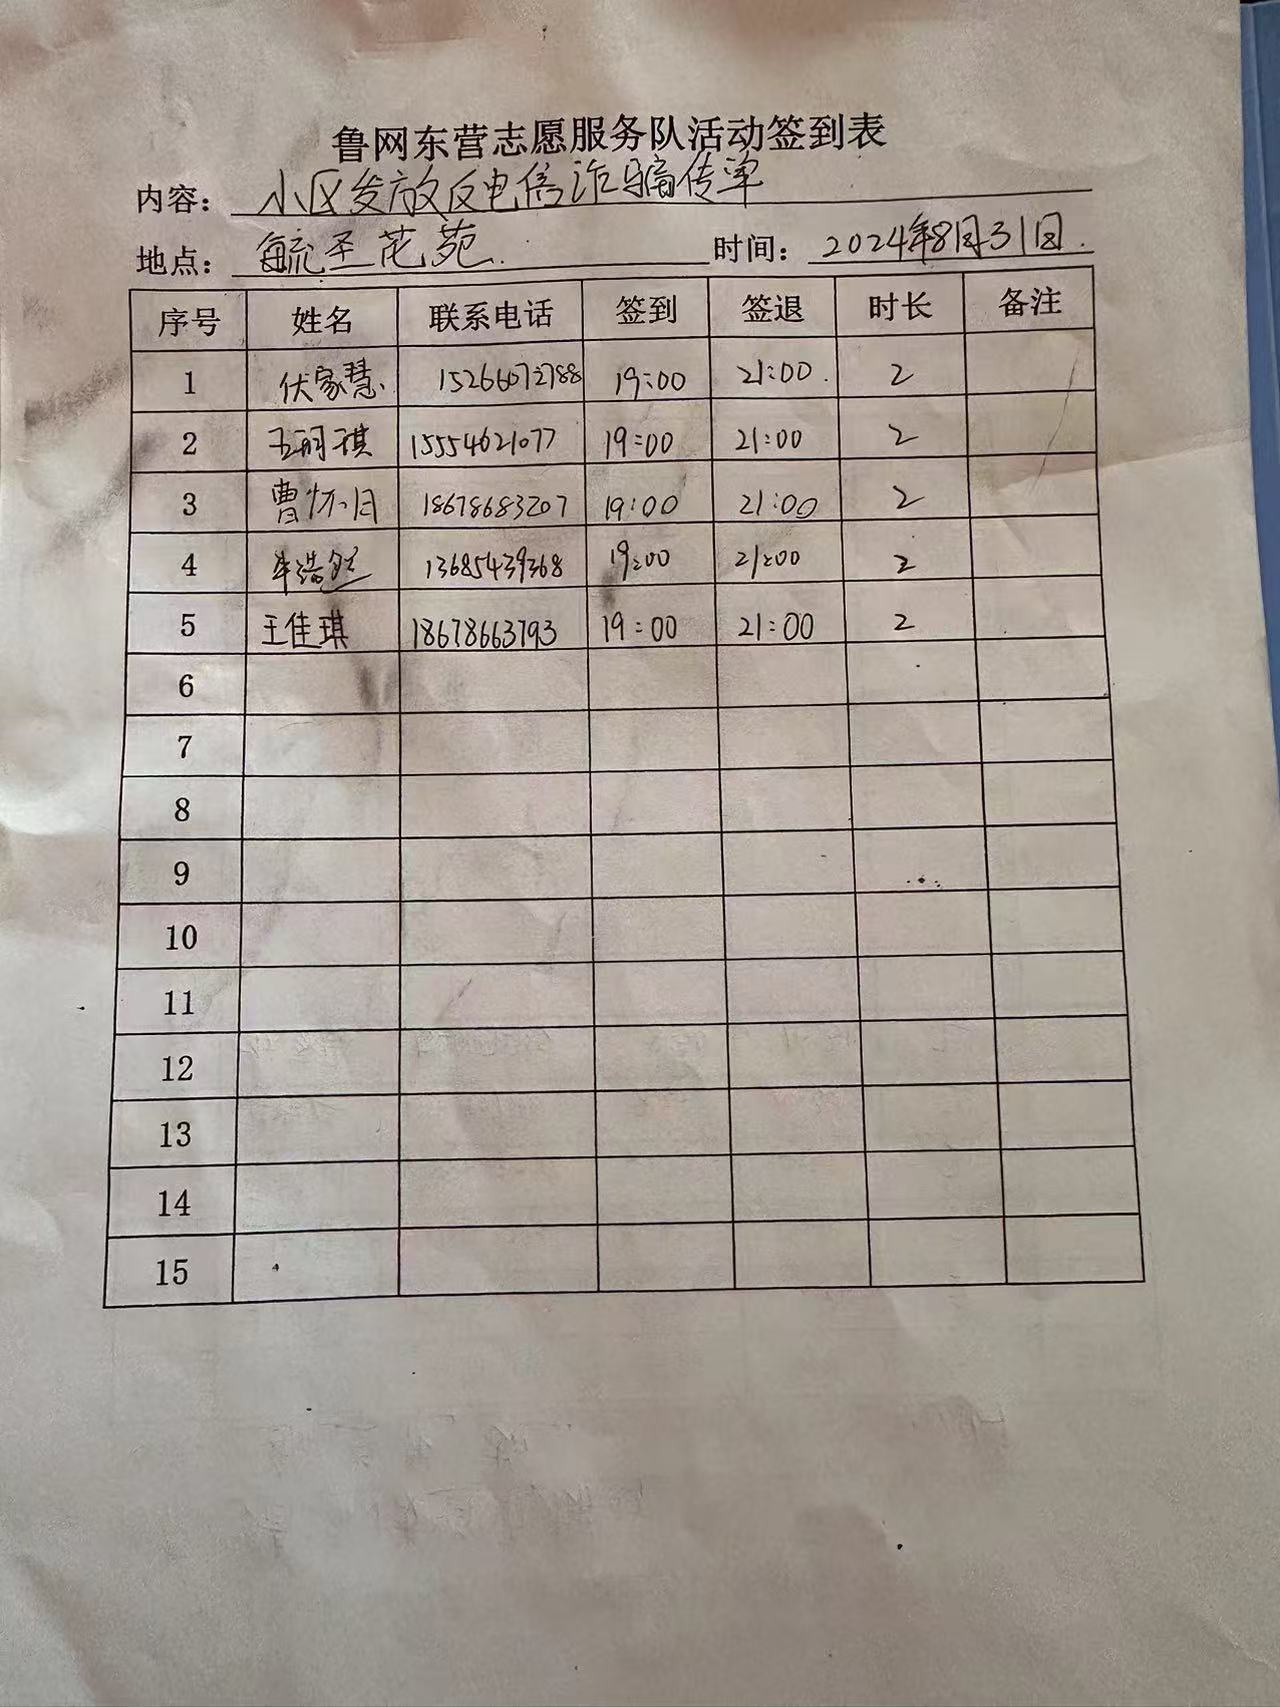 鲁网东营志愿服务队活动签到表
内容: 小区发放反电信诈骗传单
地点: 毓圣花苑. 时间: 2024年8月31日.
序号 姓名 联系电话 签到 签退 时长 备注
1 伏家慧 15266072788 19:00 21:00. 2
2 15554621077 19:00 21:00 2
3 曹怀月 18678683207 19:00 21:00 2
4 牟浩然 13685439368 19:00 21:00 2
5 王佳琪 18678663793 19:00 21:00 2
6
7
8
9
10
11
12
13
14
15